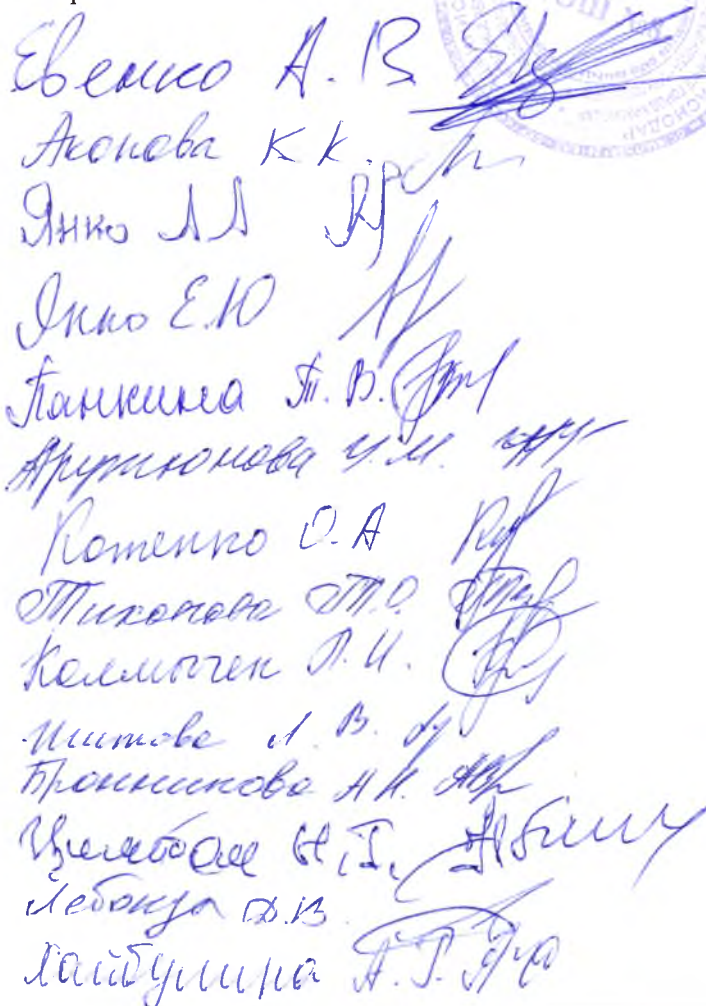 Евенко А. В
Аконова К К.
Янко А А
Янко Е.Ю
Панкина Т. В.
Арутюнова И. М.
Котенко О. А
Тихонова Т. О.
Калмычек Л. И.
Шитова Л. В.
Бронникова А Н.
Цимбал Н. Г.
Лебонда Д. В.
Хайбулина А. Г.